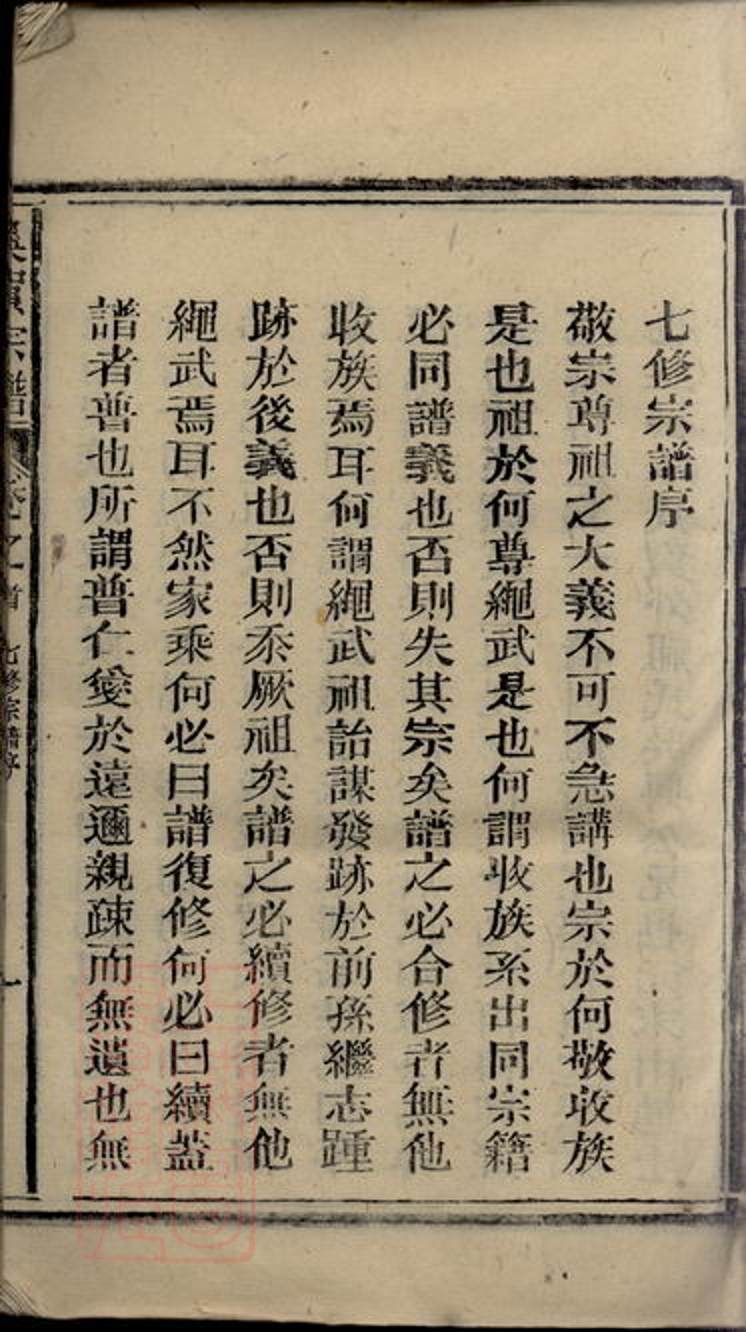 七修宗譜序
敬宗尊祖之大義不可不急講也宗於何敬收族
是也祖於何尊繩武是也何謂收族系出同宗籍
必同譜義也否則失其宗矣譜之必合修者無他
收族焉耳何謂繩武祖詒謀發跡於前孫繼志踵
跡於後義也否則忝厥祖矣譜之必續修者無他
繩武焉耳不然家乘何必曰譜復修何必曰續蓋
譜者普也所謂普仁愛於遠邇親疎而無遺也無
宗譜 卷之首 七修宗譜序 一